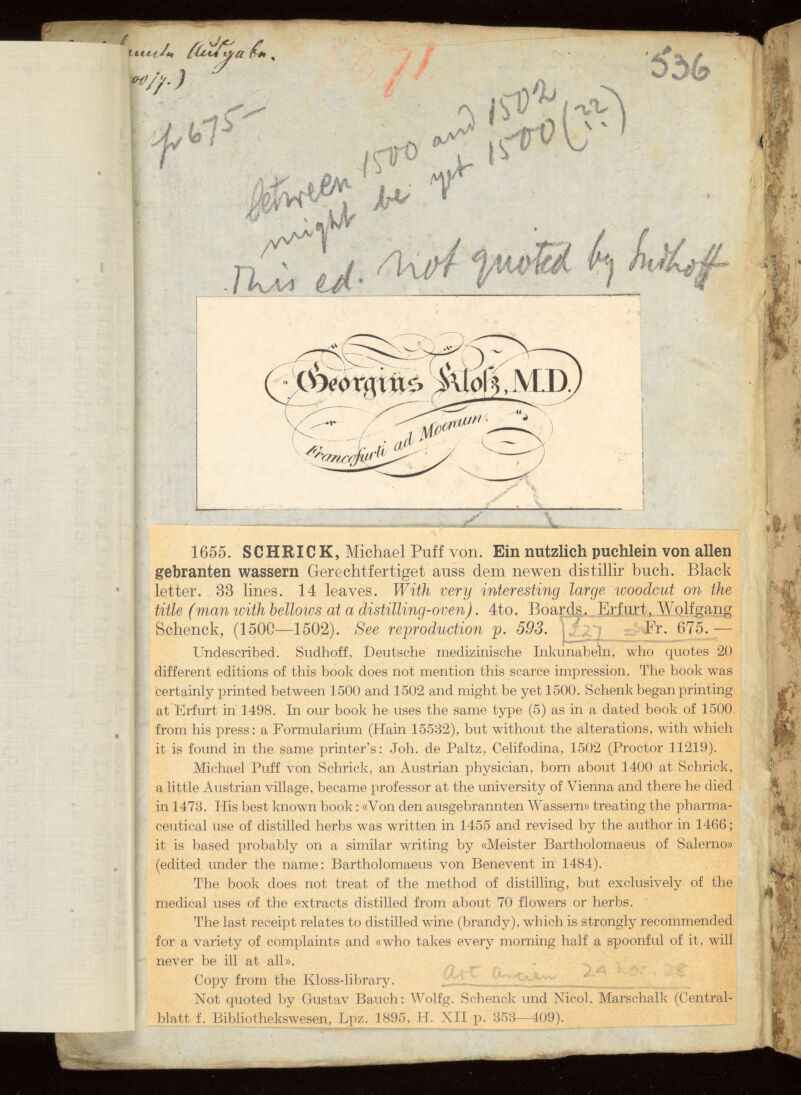 Ausgabe.
671
536
fr 675-
between 1500 and 1502
might be yet 1500 (??)
This ed. not quoted by Sudhoff
Georgius Kloſz, M.D.
Francofurti ad Moenum.
1655. SCHRICK, Michael Puff von. Ein nutzlich puchlein von allen
gebranten wassern Gerechtfertiget auss dem newen distillir buch. Black
letter. 33 lines. 14 leaves. With very interesting large woodcut on the
title (man with bellows at a distilling-oven). 4to. Boards. Erfurt, Wolfgang
Schenck, (1500—1502). See reproduction p. 593. £27 = Fr. 675.—
Undescribed. Sudhoff, Deutsche medizinische Inkunabeln, who quotes 20
different editions of this book does not mention this scarce impression. The book was
certainly printed between 1500 and 1502 and might be yet 1500. Schenk began printing
at Erfurt in 1498. In our book he uses the same type (5) as in a dated book of 1500
from his press: a Formularium (Hain 15532), but without the alterations, with which
it is found in the same printer's: Joh. de Paltz, Celifodina, 1502 (Proctor 11219).
Michael Puff von Schrick, an Austrian physician, born about 1400 at Schrick,
a little Austrian village, became professor at the university of Vienna and there he died
in 1473. His best known book: «Von den ausgebrannten Wassern» treating the pharma-
ceutical use of distilled herbs was written in 1455 and revised by the author in 1466;
it is based probably on a similar writing by «Meister Bartholomaeus of Salerno»
(edited under the name: Bartholomaeus von Benevent in 1484).
The book does not treat of the method of distilling, but exclusively of the
medical uses of the extracts distilled from about 70 flowers or herbs.
The last receipt relates to distilled wine (brandy), which is strongly recommended
for a variety of complaints and «who takes every morning half a spoonful of it, will
never be ill at all».
Copy from the Kloss-library. Art Ancien 24 Nov. 28
Not quoted by Gustav Bauch: Wolfg. Schenck und Nicol. Marschalk (Central-
blatt f. Bibliothekswesen, Lpz. 1895, H. XII p. 353—409).